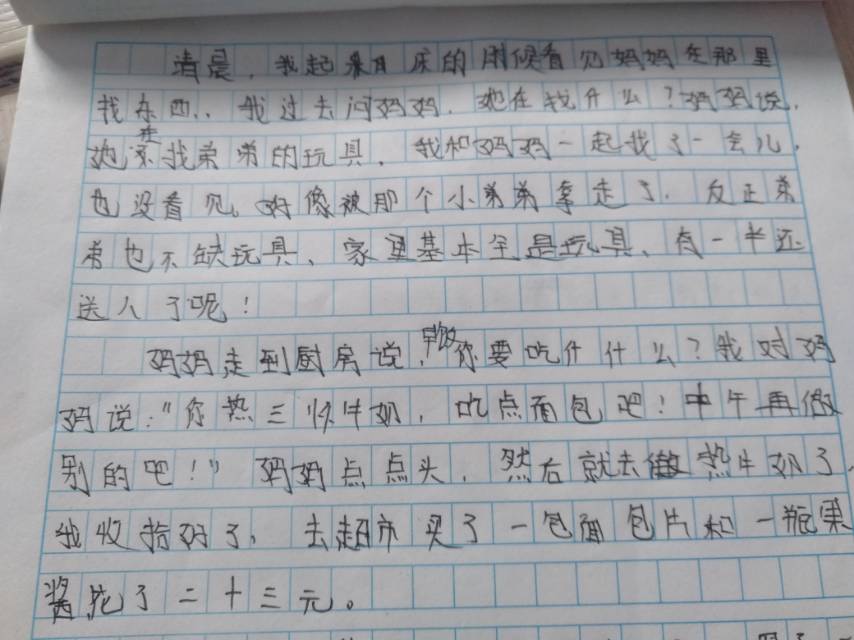 清晨，我起来用床的时候看见妈妈在那里
找东西，，我过去问妈妈，她在找什么？妈妈说，
她在找弟弟的玩具，我和妈妈一起找了一会儿，
也没看见，好像被那个小弟弟拿走了，反正弟
弟也不缺玩具、家里基本全是玩具、有一半还
送人了呢！
妈妈走到厨房说，早饭你要吃什什么？我对妈
妈说：“你热三怀牛奶，吃点面包吧！中午再做
别的吧！”妈妈点点头，然后就去做热牛奶了，
我收拾好了，去超市买了一包面包片和一瓶果
酱花了二十三元。